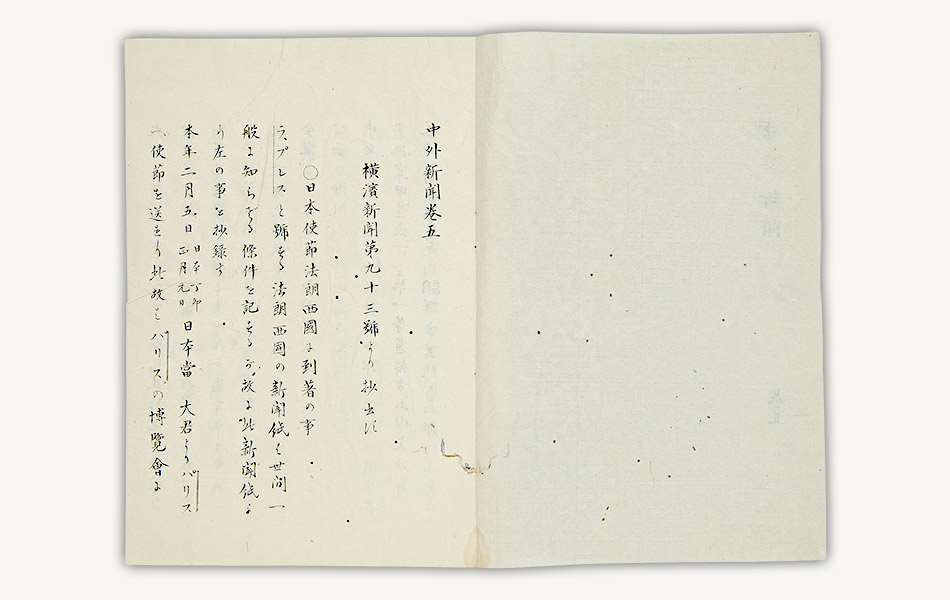 中外新聞卷五
横濱新聞第九十三號より抄出ス
〇日本使節法朗西國に到著の事
ラプレスと號する法朗西國の新聞紙ハ世間一
般に知らざる條件を記するが故に此新聞紙よ
り左の事を抄録す
本年二月五日 日本丁卯正月元日 日本當 大君よりパリス
へ使節を送るより此故はパリスの博覽會に